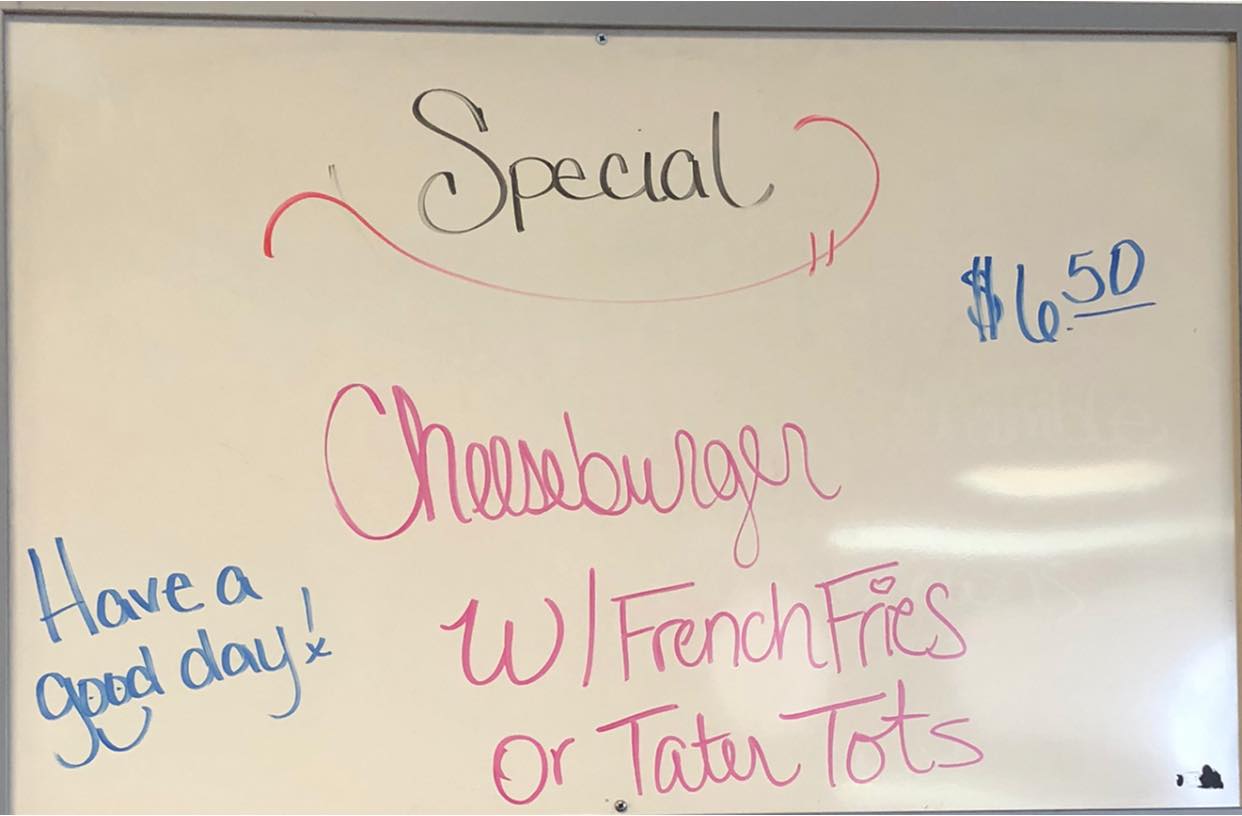 Special
$6.50
Cheeseburger
W/ French Fries
or Tater Tots
Have a
good day!